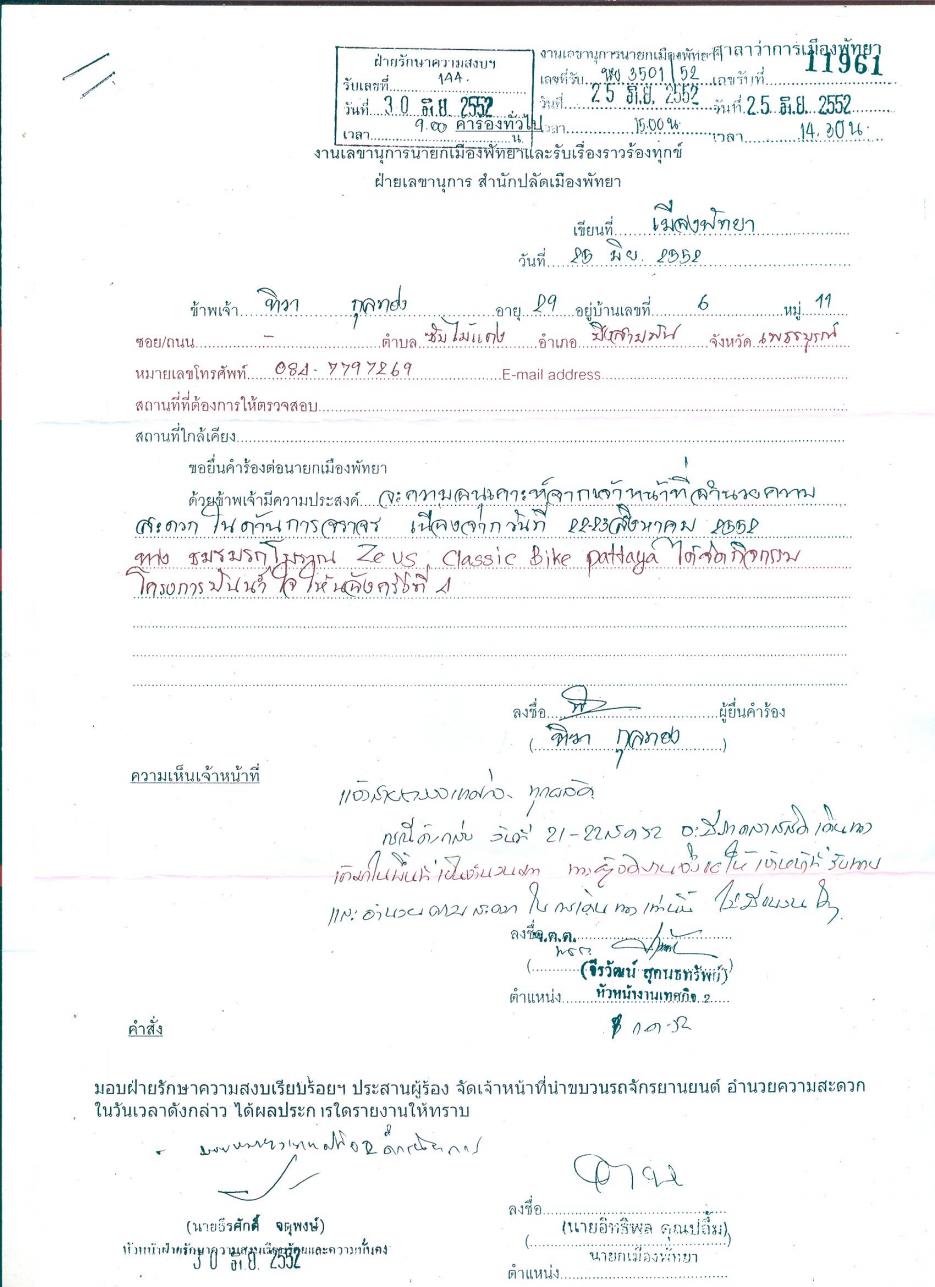 ฝ่ายรักษาความสงบฯ
รับเลขที่ 144.
วันที่ 30 มิ.ย. 2552
เวลา 9.00 น.
งานเลขานุการนายกเมืองพัทยา
เลขที่รับ 3501/52
วันที่ 25 มิ.ย. 2552
เวลา 15.00 น.
ศาลาว่าการเมืองพัทยา
เลขรับที่ 11961
วันที่ 25 มิ.ย. 2552
เวลา 14.30 น.
คำร้องทั่วไป
งานเลขานุการนายกเมืองพัทยาและรับเรื่องราวร้องทุกข์
ฝ่ายเลขานุการ สำนักปลัดเมืองพัทยา
เขียนที่ เมืองพัทยา
วันที่ 25 มิย. 2552
ข้าพเจ้า ทิวา กุลทอง อายุ 29 อยู่บ้านเลขที่ 6 หมู่ 11
ซอย/ถนน - ตำบล ซับไม้แดง อำเภอ บึงสามพัน จังหวัด เพชรบูรณ์
หมายเลขโทรศัพท์ 084-7797269 E-mail address
สถานที่ที่ต้องการให้ตรวจสอบ
สถานที่ใกล้เคียง
ขอยื่นคำร้องต่อนายกเมืองพัทยา
ด้วยข้าพเจ้ามีความประสงค์ ความอนุเคราะห์จากเจ้าหน้าที่อำนวยความ
สะดวก ในด้านการจราจร เนื่องจากวันที่ 22-23 สิงหาคม 2552
ทาง ชมรมรถโบราณ Zeus Classic Bike pattaya ได้จัดกิจกรรม
โครงการปันน้ำใจให้น้องครั้งที่ 4
ลงชื่อ ผู้ยื่นคำร้อง
(ทิวา กุลทอง)
ความเห็นเจ้าหน้าที่
กรณีดังกล่าว วันที่ 21-22 สค 52 เดินทาง
เข้ามาในพื้นที่เป็นจำนวนมาก
และอำนวยความสะดวก ในการเดินทางเท่านั้น
ลงชื่อ จ.ต.ต.
(จีรวัฒน์ สุคนธทรัพย์)
ตำแหน่ง หัวหน้างานเทศกิจ 2
กค-52
คำสั่ง
มอบฝ่ายรักษาความสงบเรียบร้อยฯ ประสานผู้ร้อง จัดเจ้าหน้าที่นำขบวนรถจักรยานยนต์ อำนวยความสะดวก
ในวันเวลาดังกล่าว ได้ผลประการใดรายงานให้ทราบ
(นายธีรศักดิ์ จตุพงษ์)
หัวหน้าฝ่ายรักษาความสงบเรียบร้อยและความมั่นคง
30 มิ.ย. 2552
ลงชื่อ
(นายอิทธิพล คุณปลื้ม)
นายกเมืองพัทยา
ตำแหน่ง